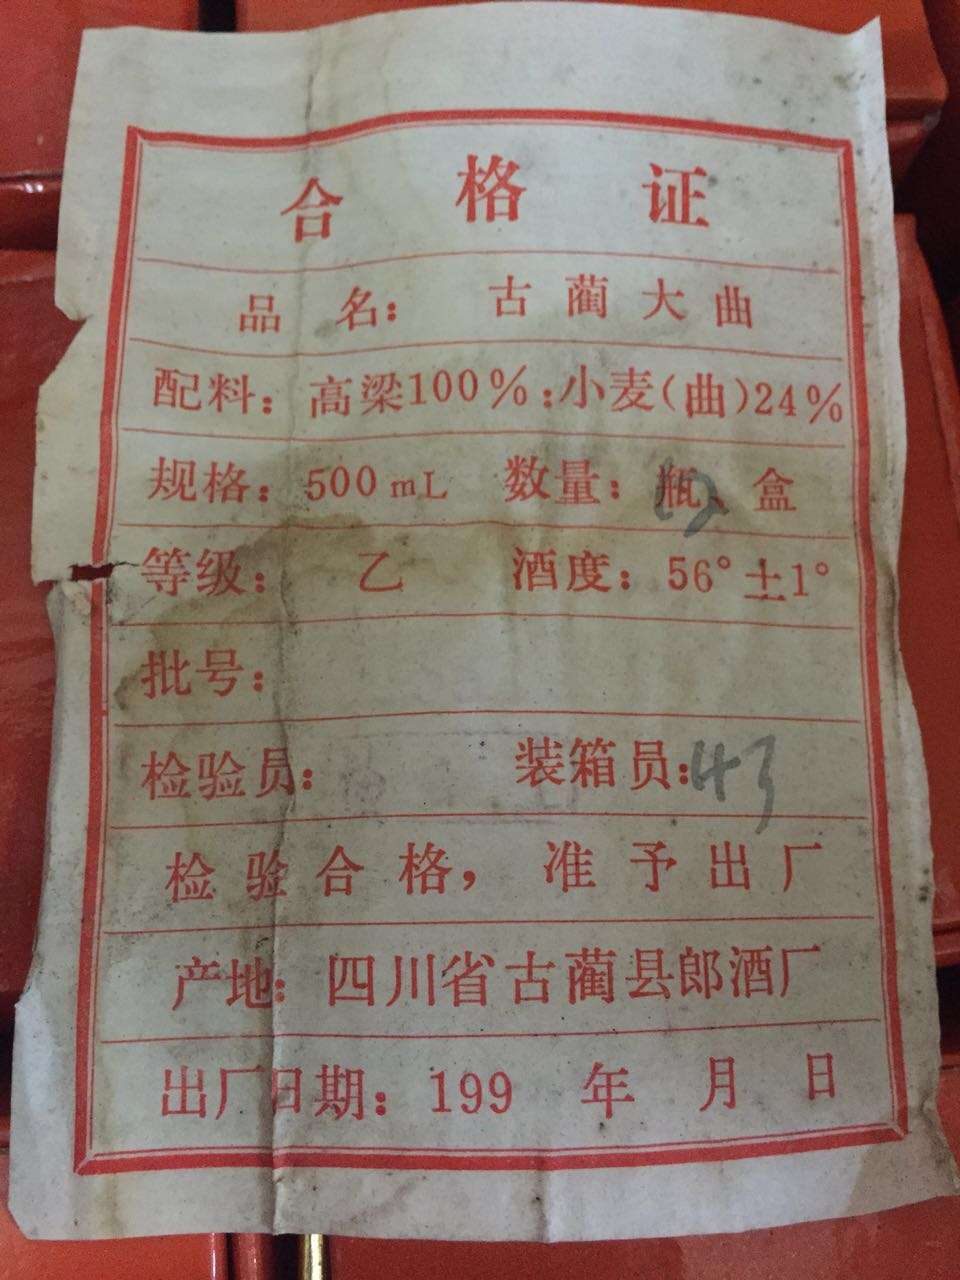 合格证
品名：古蔺大曲
配料：高梁100%：小麦(曲)24%
规格：500mL 数量：12瓶、盒
等级：乙 酒度：56°±1°
批号：
检验员： 装箱员：43
检验合格，准予出厂
产地：四川省古蔺县郎酒厂
出厂日期：199 年 月 日